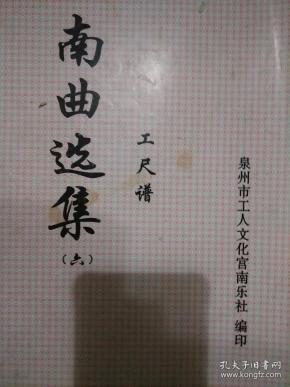 南曲选集
（六）
工尺谱
泉州市工人文化宫南乐社 编印
孔夫子旧书网
www.kongfz.com